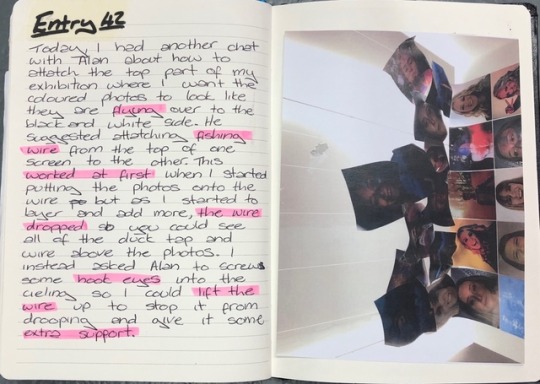 Entry 42
Today I had another chat
with Alan about how to
attatch the top part of my
exhibition where I want the
coloured photos to look like
they are flying over to the
black and white side. He
suggested attatching fishing
wire from the top of one
screen to the other. This
worked at first when I started
putting the photos onto the
wire but as I started to
layer and add more, the wire
dropped so you could see
all of the duck tap and
wire above the photos. I
instead asked Alan to screws
some hook eyes into the
cieling so I could lift the
wire up to stop it from
drooping and give it some
extra support.